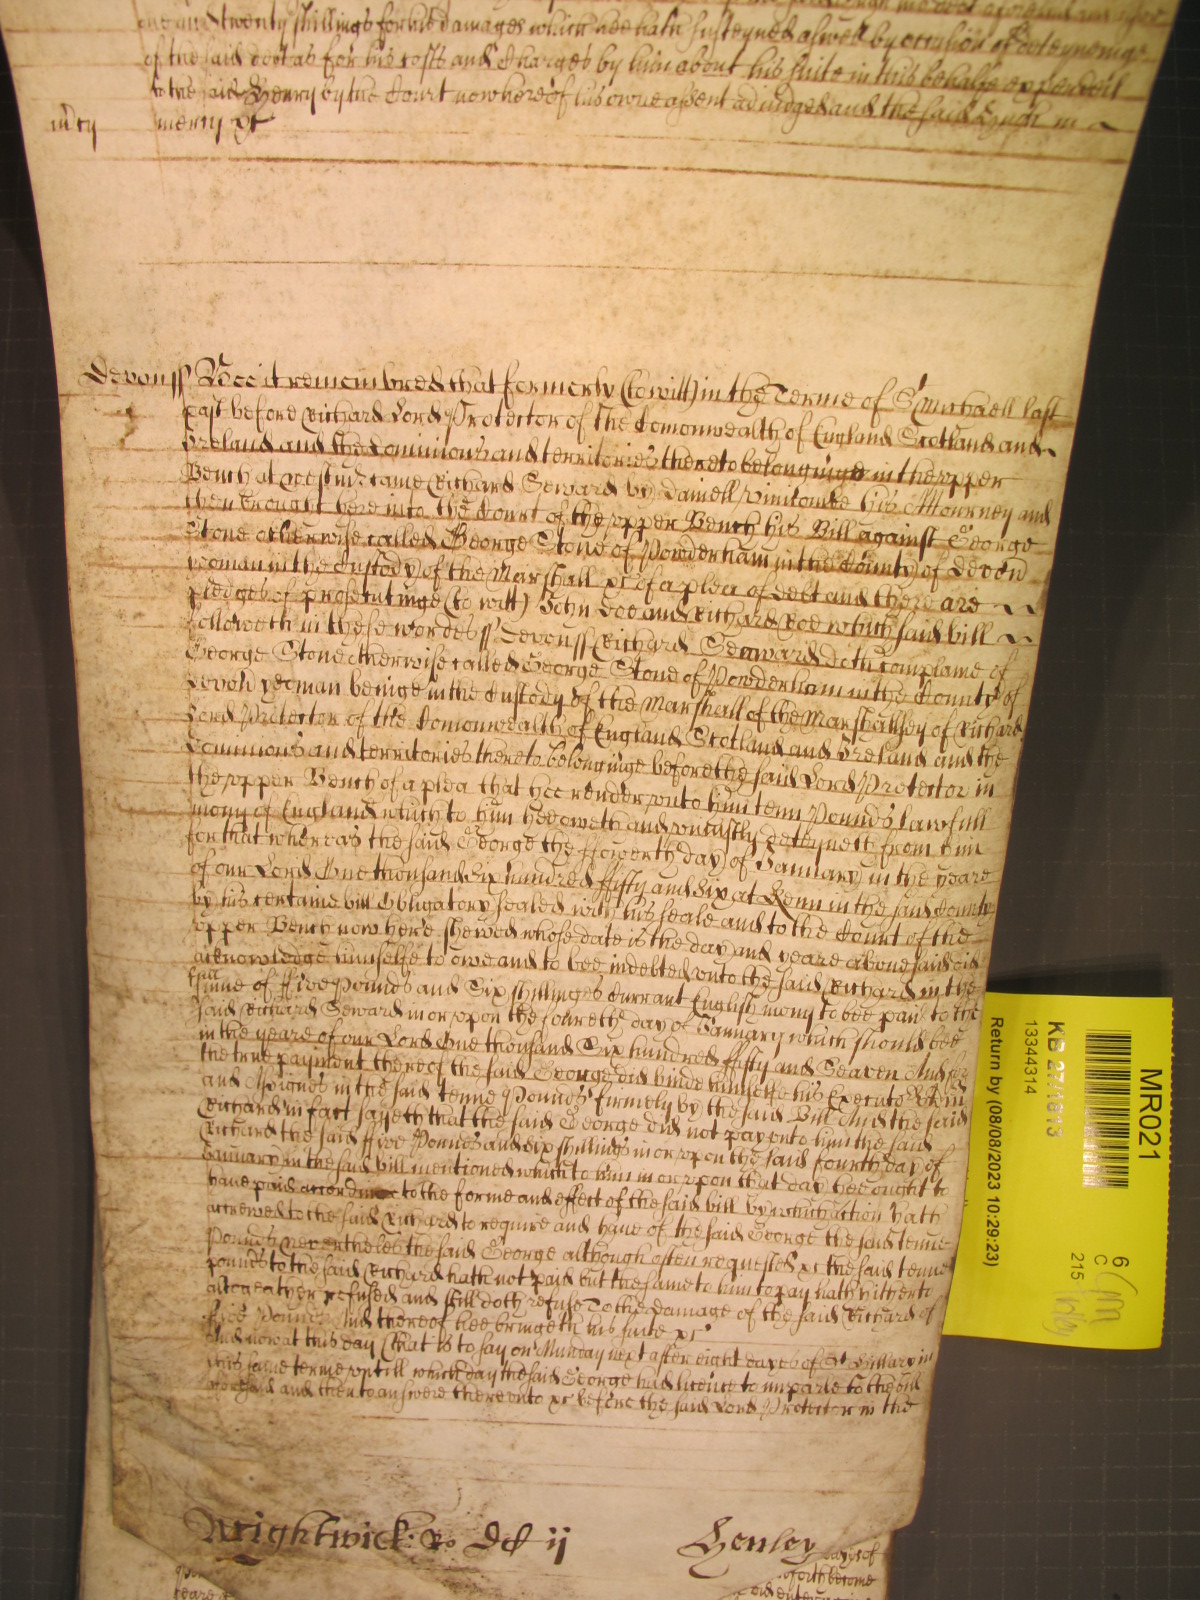 one and twenty shillings for his damages which hee hath susteyned aswell by occasion of deteyneinge
of the said debt as for his costs and charges by him about his suite in this behalfe expended
to the said Henry by the Court nowhere of his owne assent adiudged and the said Hugh in
mercy &c
Devon ss Bee it remembred that formerly (to witt) in the Terme of St Michaell last
past before Richard Lord Protector of the Comonwealth of England Scotland and
Ireland and the dominions and territories thereto belonginge in the upper
Bench at Westm came Richard Seward by Daniell Whitcombe his Attourney and
then brought here into the Court of the upper Bench his Bill against George
Stone otherwise called George Stone of Powderham in the County of Devon
yeoman in the Custody of the Marshall &c of a plea of debt and there are
pledges of prosecutinge (to witt) John Doe and Richard Roe which said bill
followeth in these wordes ss Devon ss Richard Seaward doth complaine of
George Stone otherwise called George Stone of Powderham in the County of
Devon yeoman beinge in the Custody of the Marshall of the Marshallsey of Richard
Lord Protector of the Comonwealth of England Scotland and Ireland and the
Dominions and territories thereto belonginge before the said Lord Protector in
the upper Bench of a plea that hee render unto him tenn Pounds lawfull
mony of England which to him he oweth and uniustly deteyneth from him
for that whereas the said George the ffowerth day of January in the yeare
of our Lord One thousand Six hundred ffifty and Six at Kenn in the said County
by his certaine bill Obligatory sealed with his seale and to the Court of the
upper Bench now here shewed whose date is the day and yeare abovesaid did
acknowledge himselfe to owe and to bee indebted unto the said Richard in the
full
sume of ffive Pounds and Six shillinges Currant English mony to bee paid to the
said Richard Seward in or uppon the fourth day of January which should bee
in the yeare of our Lord One thousand Six hundred ffifty and Seaven And for
the true payment thereof the said George did binde himselfe his Executors
and Assignes in the said tenne Pounds firmely by the said Bill And the said
Richard in fact sayeth that the said George did not pay unto him the said
Richard the said ffive Pounds and six shillings in or uppon the said fourth day of
January in the said bill mentioned which to him in or uppon that day hee ought to
have paid according to the forme and effect of the said bill by which action hath
accrewed to the said Richard to require and have of the said George the said tenne
Pounds neverthelesse the said George although often requested &c the said tenne
pounds to the said Richard hath not paid but the same to him to pay hath hitherto
altogeather refused and still doth refuse To the damage of the said Richard of
ffive Pounds And thereof hee bringeth his suite &c
And now at this day (that is to say) on Munday next after eight dayes of St Hillary in
this same terme untill which day the said George had licence to imparle to the bill
aforesaid and then to answere thereunto &c before the said Lord Protector in the
Wrightwick: Ro
ij
Henley
dayes of
MR021
KB 27/1813
13344314
Return by (08/08/2023 10:29:23)
6
C
215